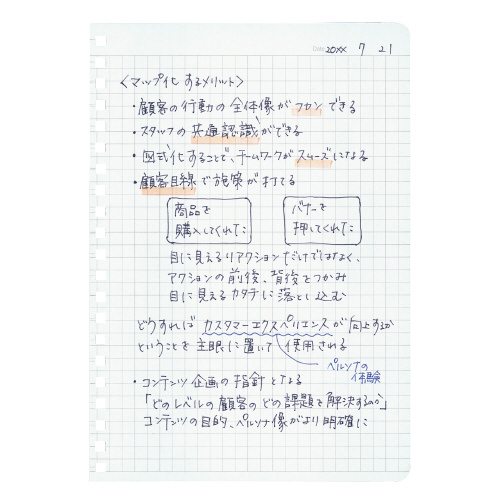 Date 20XX 7 21
〈マップ化するメリット〉
・顧客の行動の全体像がつかめできる
・スタッフの共通認識ができる
・図式化することで、チームワークがスムーズになる
・顧客目線で施策が打てる
商品を
購入してくれた
バナーを
押してくれた
目に見えるリアクションだけではなく、
アクションの前後、背後をつかみ
目に見えるカタチに落とし込む
どうすればカスタマーエクスペリエンスが向上するか
ということを主眼に置いて使用される
ペルソナの
体験
・コンテンツ企画の指針となる
「どのレベルの顧客のどの課題を解決するのか」
コンテンツの目的、ペルソナ像がより明確に